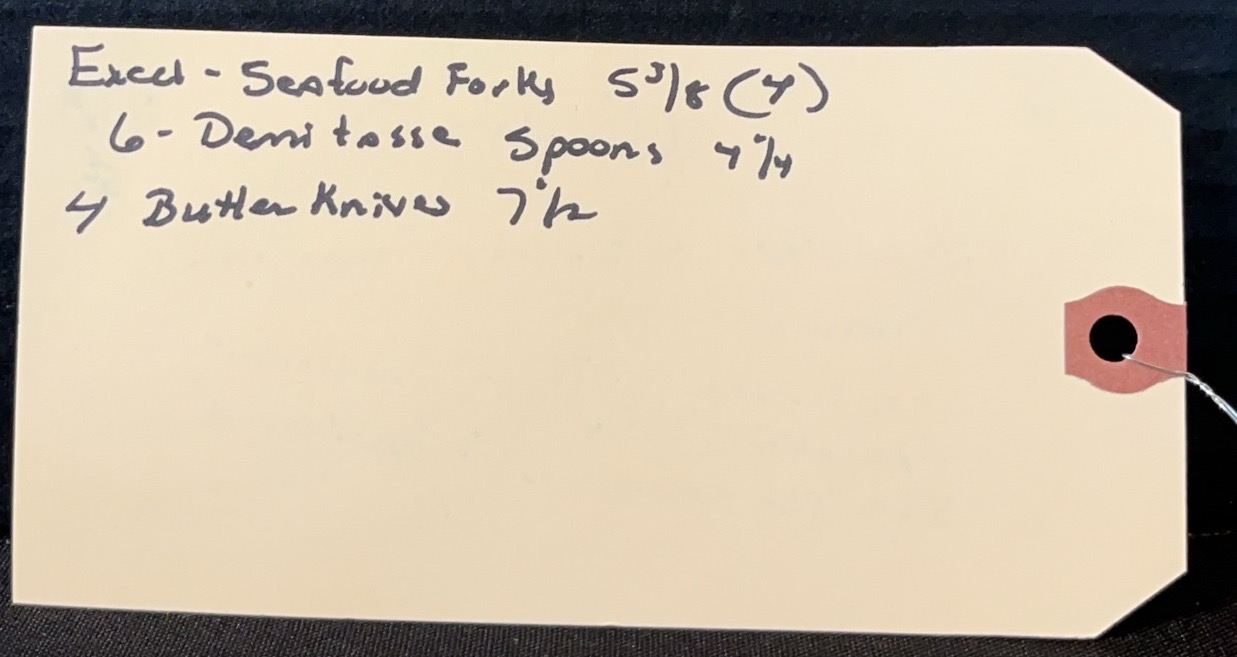 Excel - Seafood Forks 5 3/8 (4)
6 - Demi tasse Spoons 4 1/4
4 Butter Knives 7 1/2